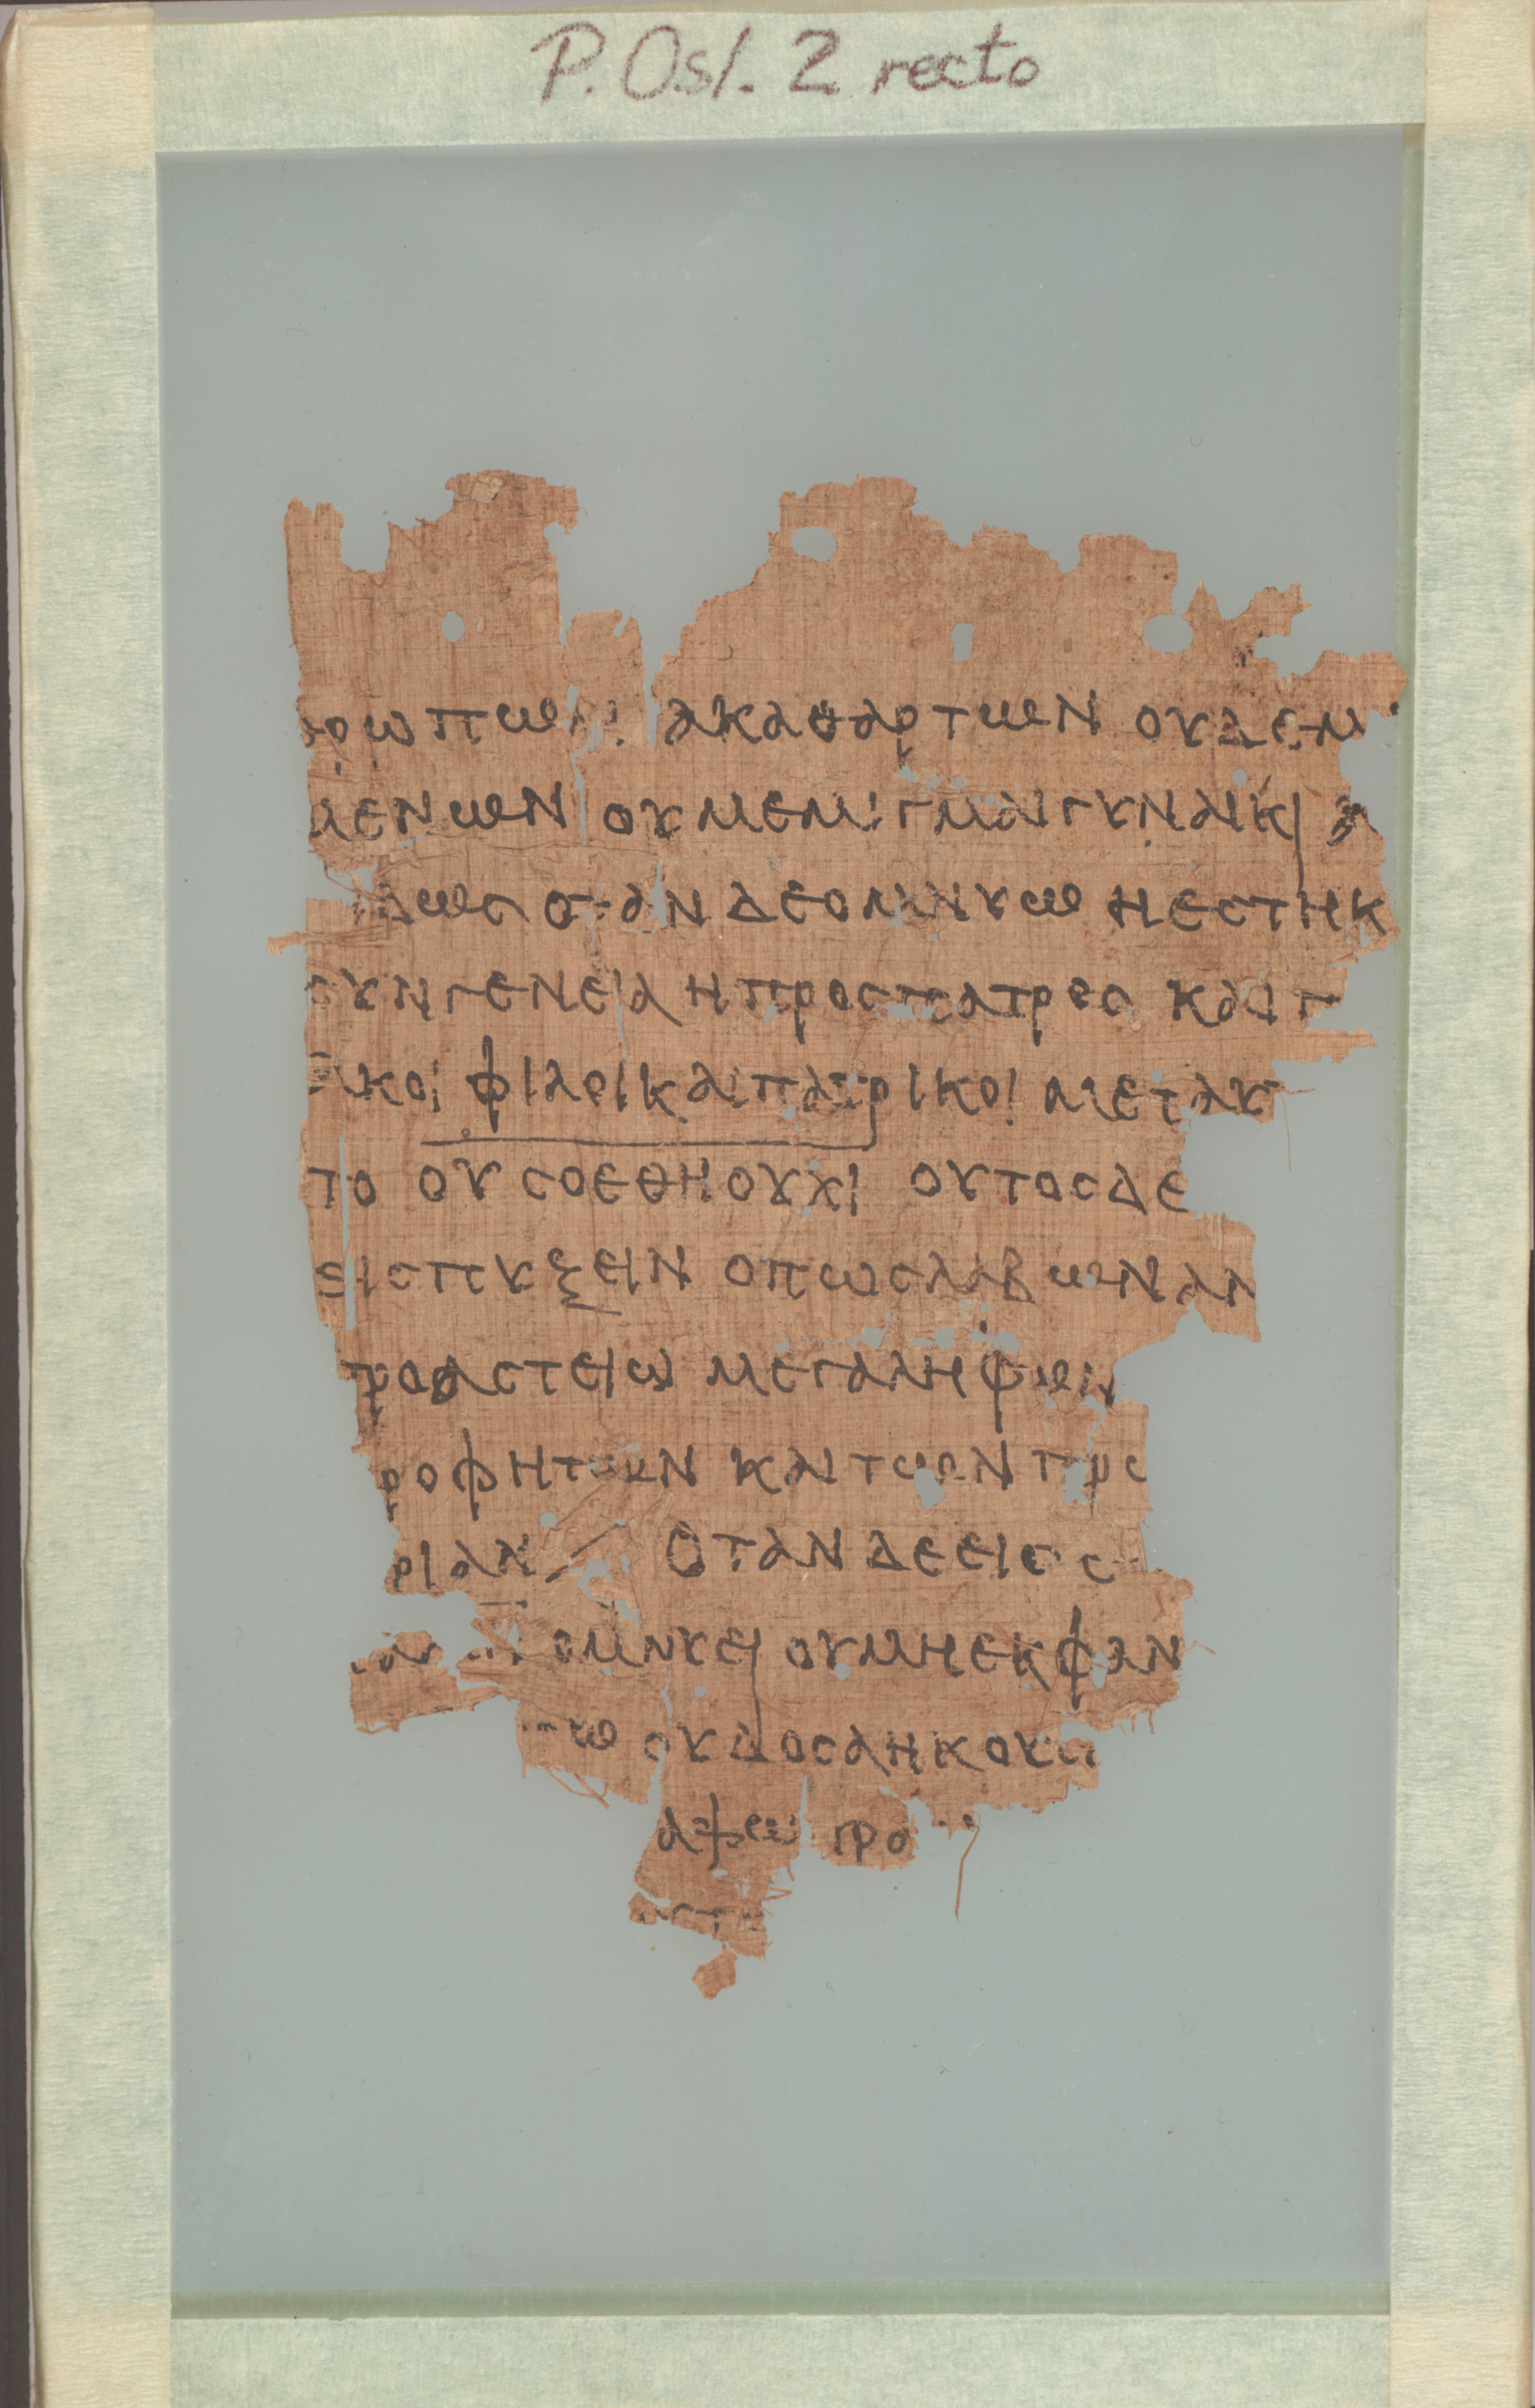 P. Osl. 2 recto
ρωπων ακαθαρτων ουδεμ
μενων ου μεμιγμαι γυναικι
δως οταν δε ομνυω η εστηκ
συνγενεια η προς πατρος και
ικοι φιλοι και πατρικοι μετακ
το ου σοεθη ουχι ουτος δε
εις πυξειν οπως λαβων αν
προαστειω μεγαλη φων
ροφητων και των πρ
ριαν / οταν δε εις
ομνυει ου μη εκφαν
ω ουδος αν ηκου
προ